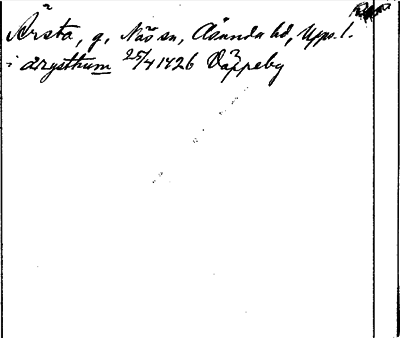 Årsta, g, Näs sn, Åsunda hd, Upps. l.
i ærysthum 25/4 1426 Väppeby